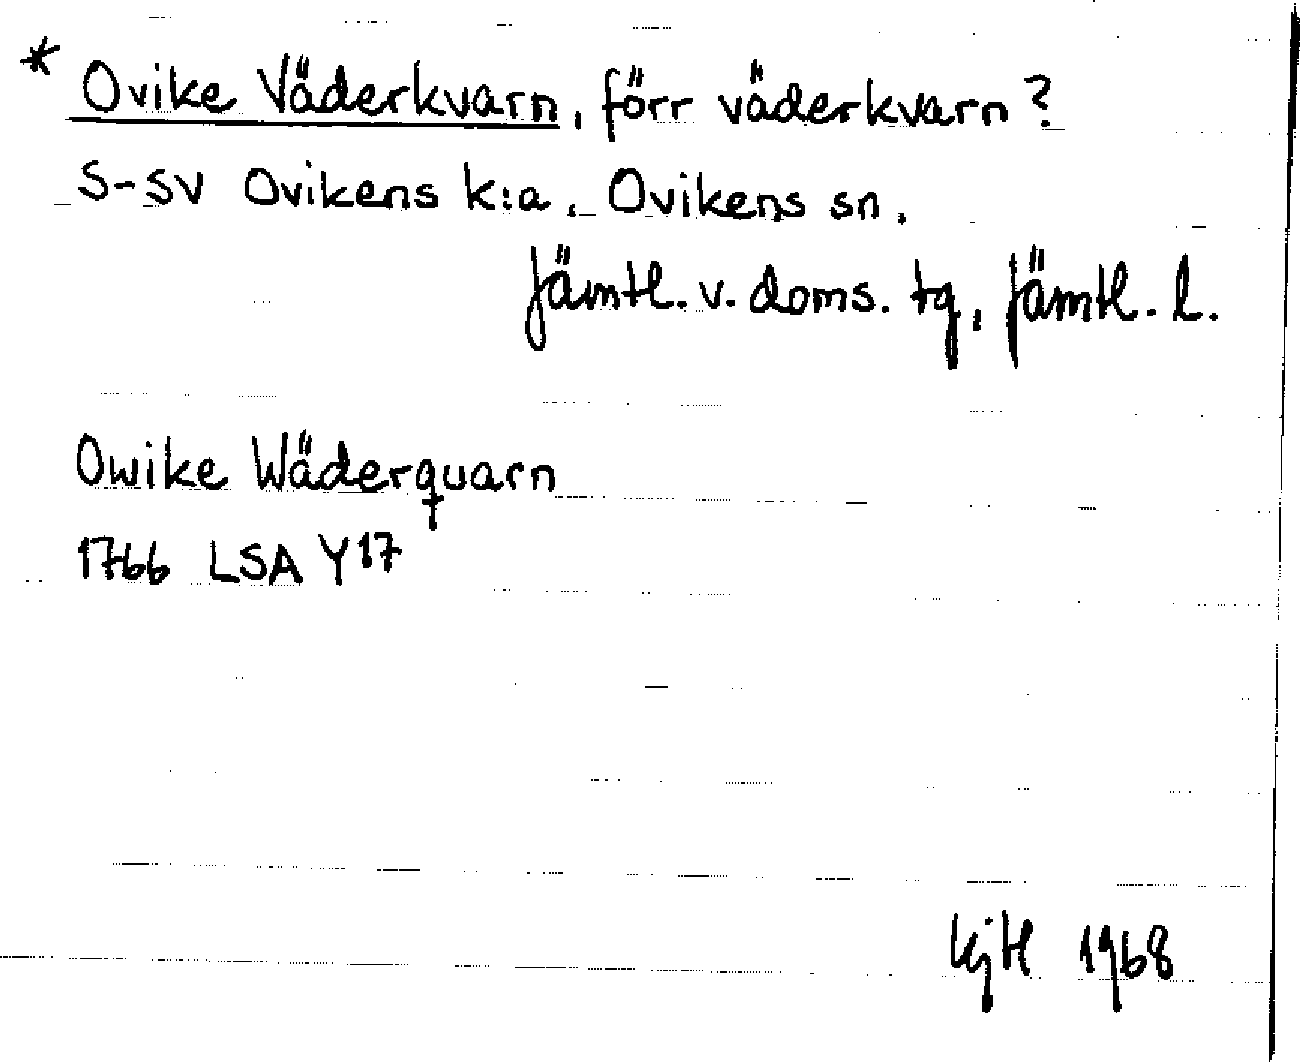 * Ovike Väderkvarn, förr väderkvarn?
S-SV Ovikens k:a. Ovikens sn.
Jämtl. v. doms. tg, Jämtl. l.
Owike Wäderquarn
1766 LSA Y17
1968